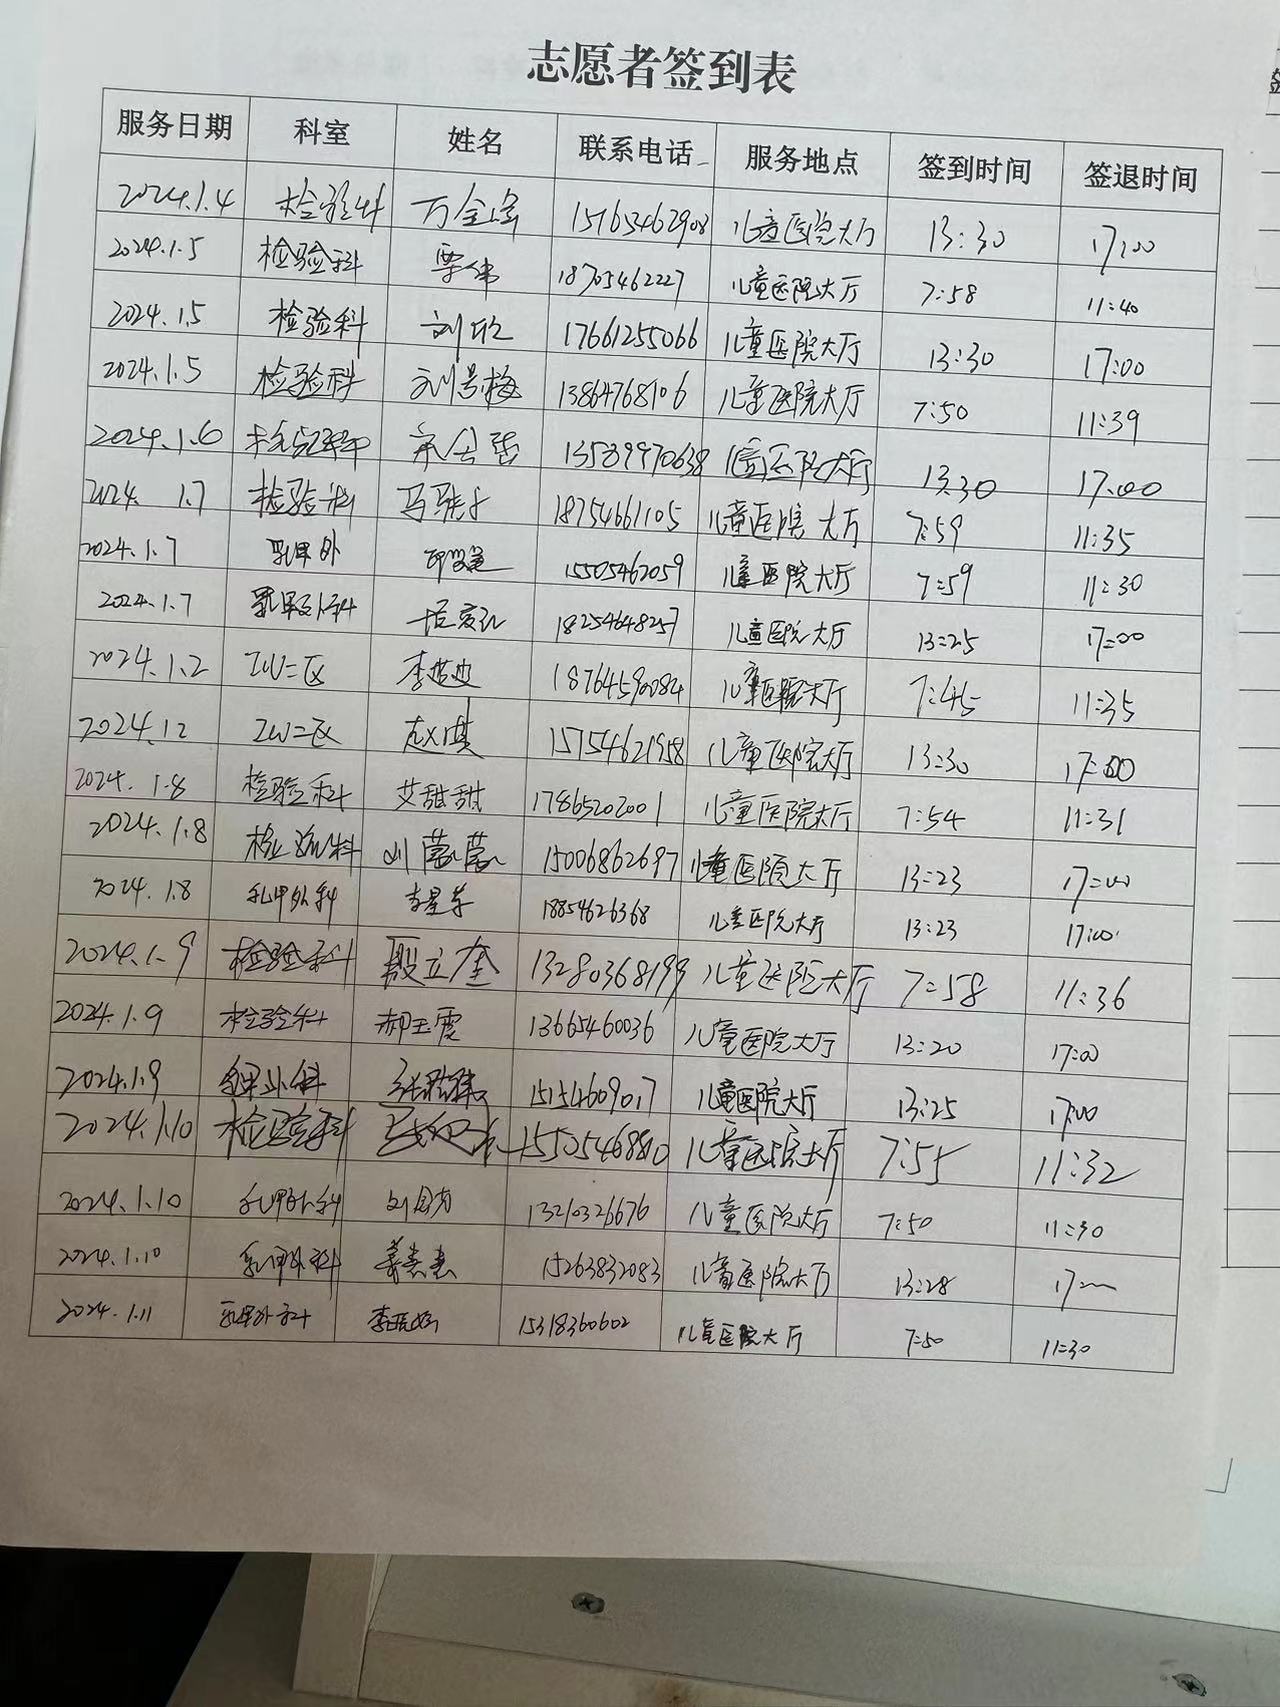 志愿者签到表
服务日期 科室 姓名 联系电话 服务地点 签到时间 签退时间
2024.1.4 检验科 万金峰 15163462908 儿童医院大厅 13:30 17:00
2024.1.5 检验科 栗伟 18705462227 儿童医院大厅 7:58 11:40
2024.1.5 检验科 刘欣 17661255066 儿童医院大厅 13:30 17:00
2024.1.5 检验科 刘景梅 13864768106 儿童医院大厅 7:50 11:39
2024.1.6 检验科 儿童医院大厅 13:30 17:00
2024.1.7 检验科 18754661105 儿童医院大厅 7:59 11:35
2024.1.7 乳甲外 15505462059 儿童医院大厅 7:59 11:30
2024.1.7 乳甲外科 18254648257 儿童医院大厅 13:25 17:00
2024.1.2 ICU二区 18764590084 儿童医院大厅 7:45 11:35
2024.1.2 ICU二区 赵琪 15754621958 儿童医院大厅 13:30 17:00
2024.1.8 检验科 艾甜甜 17865202001 儿童医院大厅 7:54 11:31
2024.1.8 检验科 15006862697 儿童医院大厅 13:23 17:00
2024.1.8 乳甲外科 李星辛 18854626368 儿童医院大厅 13:23 17:00
2024.1.9 检验科 殷立奎 13280368199 儿童医院大厅 7:58 11:36
2024.1.9 检验科 郝玉霞 13665460036 儿童医院大厅 13:20 17:00
2024.1.9 儿童医院大厅 13:25 17:00
2024.1.10 检验科 15505468810 儿童医院大厅 7:55 11:32
2024.1.10 乳甲外科 13210326676 儿童医院大厅 7:50 11:30
2024.1.10 乳甲外科 姜惠惠 15263832083 儿童医院大厅 13:28
2024.1.11 乳甲外科 15318360602 儿童医院大厅 7:50 11:30